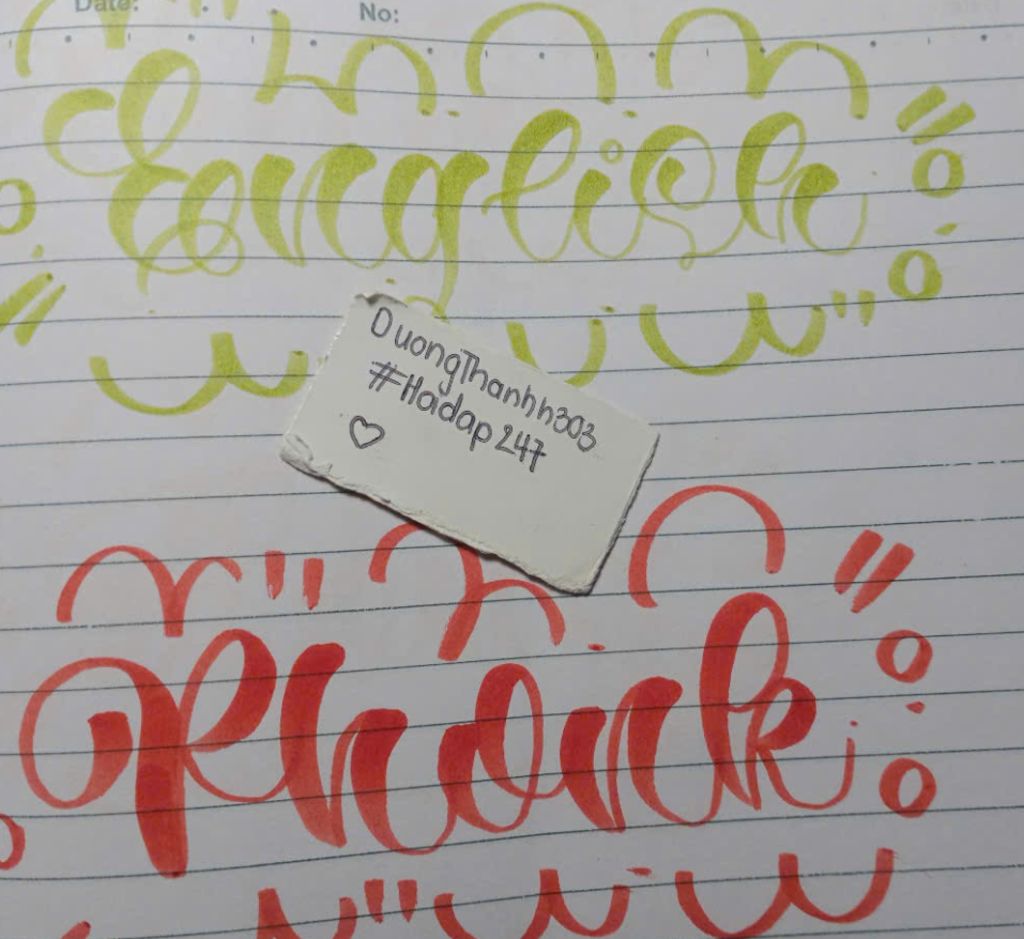 Date: No:
English
DuongThanhh303
#Hoidap247
Phonk